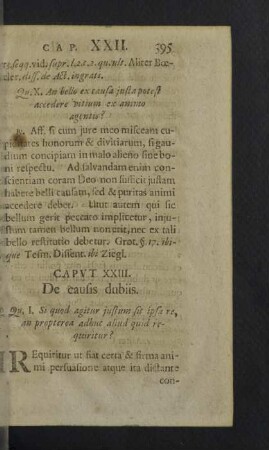 CAP. XXII. 395
& seqq. vid. supr. l. 2. c. 1. qu. ult. Aliter Boe-
cler. diss. de Act. ingrati.
Qu. X. An bello ex causa justa potest
accedere vitium ex animo
agentis?
Aff. si cum jure meo misceant cu-
piditates honorum & divitiarum, si gau-
dium concipiam in malo alieno sine bo-
ni respectu. Ad salvandam enim con-
scientiam coram Deo non sufficit justam
habere belli causam, sed & puritas animi
accedere debet. Utut autem qui sic
bellum gerit peccato implicetur, inju-
stum tamen bellum non erit, nec ex tali
bello restitutio debetur. Grot. §. 17. ibi-
que Tesm. Dissent. ibi Ziegl.
CAPUT XXIII.
De causis dubiis.
Qu. I. Si quod agitur justum sit ipsa re,
an propterea adhuc aliud quid re-
quiritur?
REquiritur ut fiat certa & firma ani-
mi persuasione atque ita dictante
con-